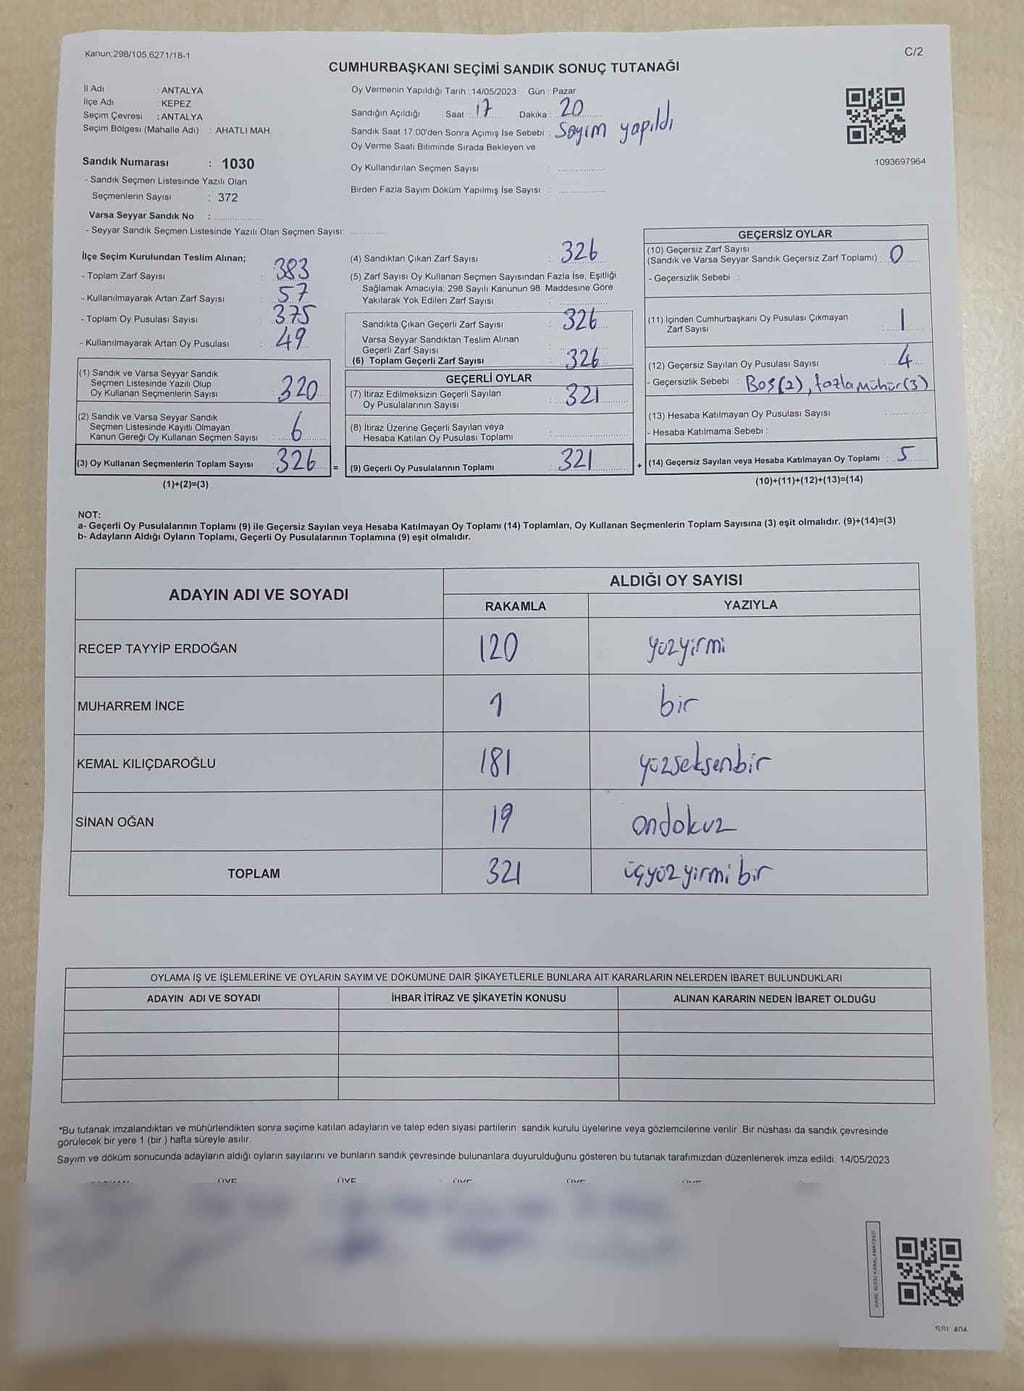 Kanun,298/105,6271/18-1
C/2
CUMHURBAŞKANI SEÇİMİ SANDIK SONUÇ TUTANAĞI
İl Adı : ANTALYA
İlçe Adı : KEPEZ
Seçim Çevresi : ANTALYA
Seçim Bölgesi (Mahalle Adı) : AHATLI MAH.
Sandık Numarası : 1030
- Sandık Seçmen Listesinde Yazılı Olan
Seçmenlerin Sayısı : 372
Varsa Seyyar Sandık No :
- Seyyar Sandık Seçmen Listesinde Yazılı Olan Seçmen Sayısı:
Oy Vermenin Yapıldığı Tarih :14/05/2023 Gün : Pazar
Sandığın Açıldığı Saat : 17 Dakika : 20
Sandık Saat 17:00'den Sonra Açımış İse Sebebi : Sayım yapıldı
Oy Verme Saati Bitiminde Sırada Bekleyen ve
Oy Kullandırılan Seçmen Sayısı :
Birden Fazla Sayım Döküm Yapılmış İse Sayısı :
1093697964
İlçe Seçim Kurulundan Teslim Alınan;
- Toplam Zarf Sayısı : 383
- Kullanılmayarak Artan Zarf Sayısı : 57
- Toplam Oy Pusulası Sayısı : 375
- Kullanılmayarak Artan Oy Pusulası : 49
(1) Sandık ve Varsa Seyyar Sandık
Seçmen Listesinde Yazılı Olup
Oy Kullanan Seçmenlerin Sayısı : 320
(2) Sandık ve Varsa Seyyar Sandık
Seçmen Listesinde Kayıtlı Olmayan
Kanun Gereği Oy Kullanan Seçmen Sayısı : 6
(3) Oy Kullanan Seçmenlerin Toplam Sayısı : 326
(1)+(2)=(3)
(4) Sandıktan Çıkan Zarf Sayısı : 326
(5) Zarf Sayısı Oy Kullanan Seçmen Sayısından Fazla İse, Eşitliği
Sağlamak Amacıyla; 298 Sayılı Kanunun 98. Maddesine Göre
Yakılarak Yok Edilen Zarf Sayısı :
Sandıkta Çıkan Geçerli Zarf Sayısı : 326
Varsa Seyyar Sandıktan Teslim Alınan
Geçerli Zarf Sayısı :
(6) Toplam Geçerli Zarf Sayısı : 326
GEÇERLİ OYLAR
(7) İtiraz Edilmeksizin Geçerli Sayılan
Oy Pusulalarının Sayısı : 321
(8) İtiraz Üzerine Geçerli Sayılan veya
Hesaba Katılan Oy Pusulası Toplamı :
= (9) Geçerli Oy Pusulalarının Toplamı : 321
GEÇERSİZ OYLAR
(10) Geçersiz Zarf Sayısı
(Sandık ve Varsa Seyyar Sandık Geçersiz Zarf Toplamı) : 0
- Geçersizlik Sebebi :
(11) İçinden Cumhurbaşkanı Oy Pusulası Çıkmayan
Zarf Sayısı : 1
(12) Geçersiz Sayılan Oy Pusulası Sayısı : 4
- Geçersizlik Sebebi : Boş(2), fazla mühür(3)
(13) Hesaba Katılmayan Oy Pusulası Sayısı :
- Hesaba Katılmama Sebebi :
+ (14) Geçersiz Sayılan veya Hesaba Katılmayan Oy Toplamı : 5
(10)+(11)+(12)+(13)=(14)
NOT:
a- Geçerli Oy Pusulalarının Toplamı (9) ile Geçersiz Sayılan veya Hesaba Katılmayan Oy Toplamı (14) Toplamları, Oy Kullanan Seçmenlerin Toplam Sayısına (3) eşit olmalıdır. (9)+(14)=(3)
b- Adayların Aldığı Oyların Toplamı, Geçerli Oy Pusulalarının Toplamına (9) eşit olmalıdır.
ADAYIN ADI VE SOYADI ALDIĞI OY SAYISI
RAKAMLA YAZIYLA
RECEP TAYYİP ERDOĞAN 120 yüzyirmi
MUHARREM İNCE 1 bir
KEMAL KILIÇDAROĞLU 181 yüzseksenbir
SİNAN OĞAN 19 ondokuz
TOPLAM 321 üçyüzyirmi bir
OYLAMA İŞ VE İŞLEMLERİNE VE OYLARIN SAYIM VE DÖKÜMÜNE DAİR ŞİKAYETLERLE BUNLARA AİT KARARLARIN NELERDEN İBARET BULUNDUKLARI
ADAYIN ADI VE SOYADI İHBAR İTİRAZ VE ŞİKAYETİN KONUSU ALINAN KARARIN NEDEN İBARET OLDUĞU
*Bu tutanak imzalandıktan ve mühürlendikten sonra seçime katılan adayların ve talep eden siyasi partilerin sandık kurulu üyelerine veya gözlemcilerine verilir .Bir nüshası da sandık çevresinde
görülecek bir yere 1 (bir ) hafta süreyle asılır.
Sayım ve döküm sonucunda adayların aldığı oyların sayılarını ve bunların sandık çevresinde bulunanlara duyurulduğunu gösteren bu tutanak tarafımızdan düzenlenerek imza edildi. 14/05/2023
ÜYE ÜYE ÜYE ÜYE